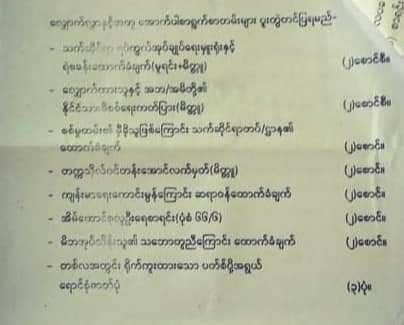 လျှောက်လွှာနှင့်အတူ အောက်ပါစာရွက်စာတမ်းများ ပူးတွဲတင်ပြရမည်-
- သက်ဆိုင်ရာ ရပ်ကွက်အုပ်ချုပ်ရေးမှူးရုံးနှင့်
ရဲစခန်းထောက်ခံချက်(မူရင်း+မိတ္တူ) (၂)စောင်စီ။
- လျှောက်ထားသူနှင့် အဘ/အမိတို့၏
နိုင်ငံသားစိစစ်ရေးကတ်ပြား(မိတ္တူ) (၂)စောင်စီ။
- စစ်မှုထမ်း၏ မှီခိုသူဖြစ်ကြောင်း သက်ဆိုင်ရာတပ်/ဌာန၏
ထောက်ခံချက် (၂)စောင်။
- တက္ကသိုလ်ဝင်တန်းအောင်လက်မှတ်(မိတ္တူ) (၂)စောင်။
- ကျန်းမာရေးကောင်းမွန်ကြောင်း ဆရာဝန်ထောက်ခံချက် (၂)စောင်။
- အိမ်ထောင်စုလူဦးရေစာရင်း(ပုံစံ ၆၆/၆) (၂)စောင်။
- မိဘအုပ်ထိန်းသူ၏ သဘောတူညီကြောင်း ထောက်ခံချက် (၂)စောင်။
- တစ်လအတွင်း ရိုက်ကူးထားသော ပတ်စ်ပို့အရွယ်
ရောင်စုံဓာတ်ပုံ (၃)ပုံ။